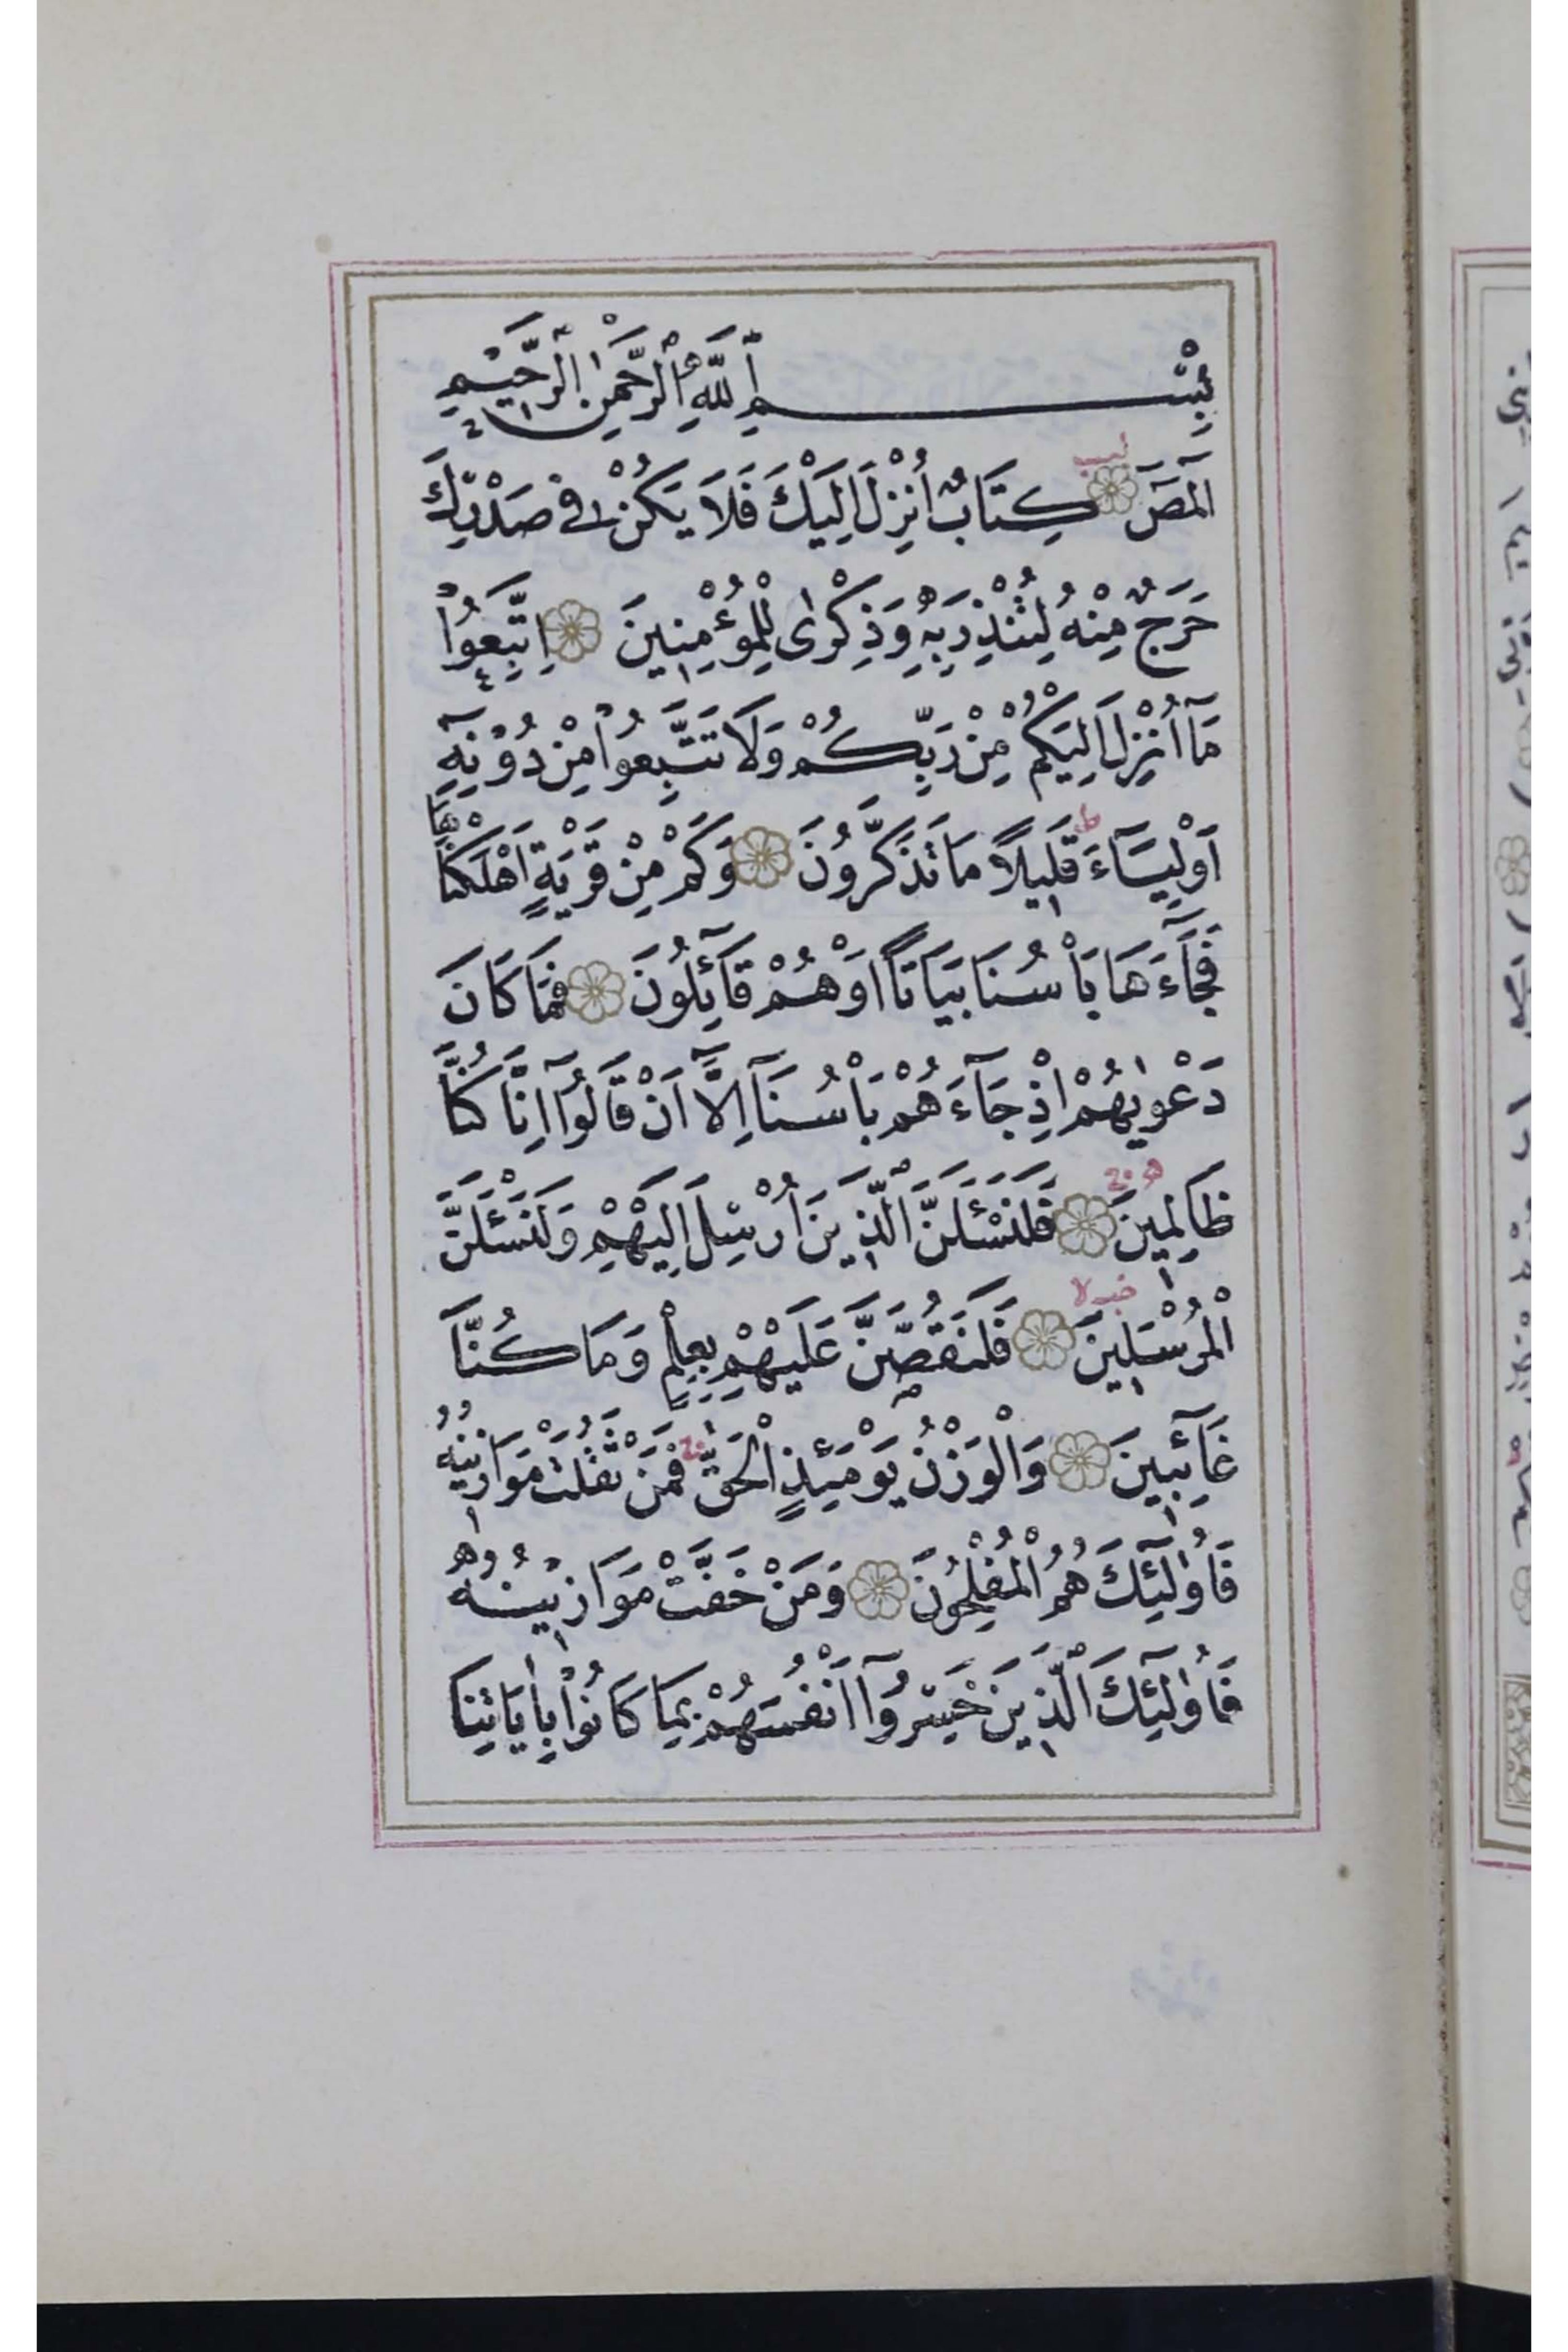 بِسْمِ اللّٰهِ الرَّحْمٰنِ الرَّحِيمِ
الٓمٓصٓ كِتَابٌ اُنْزِلَ اِلَيْكَ فَلَا يَكُنْ فِى صَدْرِكَ
حَرَجٌ مِنْهُ لِتُنْذِرَ بِهِ وَذِكْرٰى لِلْمُؤْمِنِينَ اِتَّبِعُوا
مَٓا اُنْزِلَ اِلَيْكُمْ مِنْ رَبِّكُمْ وَلَا تَتَّبِعُوا مِنْ دُونِهِٓ
اَوْلِيَٓاءَ قَلِيلًا مَا تَذَكَّرُونَ وَكَمْ مِنْ قَرْيَةٍ اَهْلَكْنَاهَا
فَجَٓاءَهَا بَأْسُنَا بَيَاتًا اَوْ هُمْ قَٓائِلُونَ فَمَا كَانَ
دَعْوٰيهُمْ اِذْ جَٓاءَهُمْ بَأْسُنَٓا اِلَّٓا اَنْ قَالُٓوا اِنَّا كُنَّا
ظَالِمِينَ فَلَنَسْئَلَنَّ الَّذِينَ اُرْسِلَ اِلَيْهِمْ وَلَنَسْئَلَنَّ
الْمُرْسَلِينَ فَلَنَقُصَّنَّ عَلَيْهِمْ بِعِلْمٍ وَمَا كُنَّا
غَٓائِبِينَ وَالْوَزْنُ يَوْمَئِذٍ الْحَقُّ فَمَنْ ثَقُلَتْ مَوَازِينُهُ
فَاُولٰٓئِكَ هُمُ الْمُفْلِحُونَ وَمَنْ خَفَّتْ مَوَازِينُهُ
فَاُولٰٓئِكَ الَّذِينَ خَسِرُٓوا اَنْفُسَهُمْ بِمَا كَانُوا بِاٰيَاتِنَا